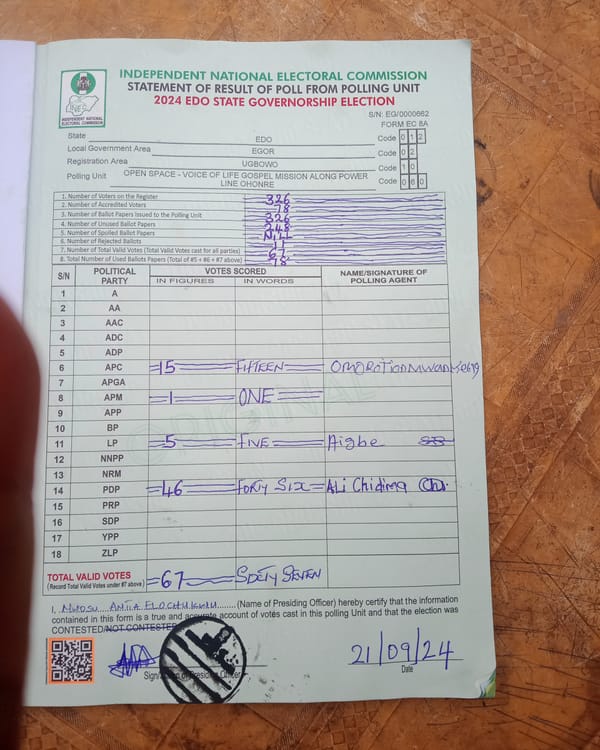 INDEPENDENT NATIONAL ELECTORAL COMMISSION
STATEMENT OF RESULT OF POLL FROM POLLING UNIT
2024 EDO STATE GOVERNORSHIP ELECTION
INDEPENDENT NATIONAL
ELECTORAL COMMISSION
S/N: EG/0000662
FORM EC 8A
State EDO Code 0 1 2
Local Government Area EGOR Code 0 2
Registration Area UGBOWO Code 1 0
Polling Unit OPEN SPACE - VOICE OF LIFE GOSPEL MISSION ALONG POWER LINE OHONRE Code 0 6 0
1. Number of Voters on the Register 326
2. Number of Accredited Voters 78
3. Number of Ballot Papers Issued to the Polling Unit 326
4. Number of Unused Ballot Papers 248
5. Number of Spoiled Ballot Papers Nill
6. Number of Rejected Ballots 11
7. Number of Total Valid Votes (Total Valid Votes cast for all parties) 67
8. Total Number of Used Ballots Papers (Total of #5 + #6 + #7 above) 78
S/N POLITICAL PARTY VOTES SCORED NAME/SIGNATURE OF POLLING AGENT
IN FIGURES IN WORDS
1 A
2 AA
3 AAC
4 ADC
5 ADP
6 APC 15 FIFTEEN
7 APGA
8 APM 1 ONE
9 APP
10 BP
11 LP 5 FIVE Aigbe
12 NNPP
13 NRM
14 PDP 46 FORTY SIX Ali Chidima
15 PRP
16 SDP
17 YPP
18 ZLP
TOTAL VALID VOTES 67 SIXTY SEVEN
(Record Total Valid Votes under #7 above)
I, NWOSU (Name of Presiding Officer) hereby certify that the information
contained in this form is a true and accurate account of votes cast in this polling Unit and that the election was
CONTESTED/NOT CONTESTED
21/09/24
Date